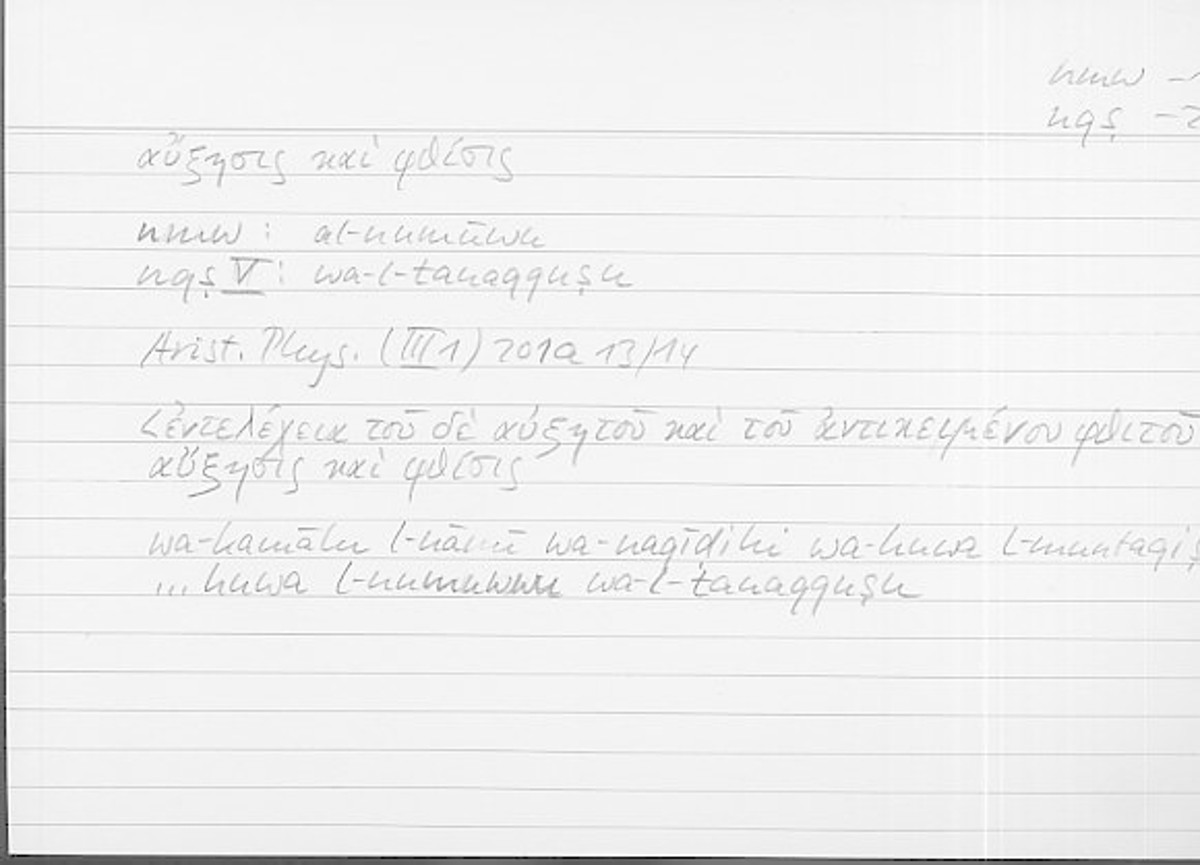 nmw – 1
nqṣ – 2
αὔξησις καὶ φθίσις
nmw : al-numūwu
nqṣ V : wa-l-tanaqquṣu
Arist. Phys. (III 1) 201a 13/14
<ἐντελέχεια τοῦ δὲ αὐξητοῦ καὶ τοῦ ἀντικειμένου φθιτοῦ
αὔξησις καὶ φθίσις
wa-kamālu l-nāmī wa-naqīḍihi wa-huwa l-muntaqiṣ
... huwa l-numuwwu wa-l-tanaqquṣu